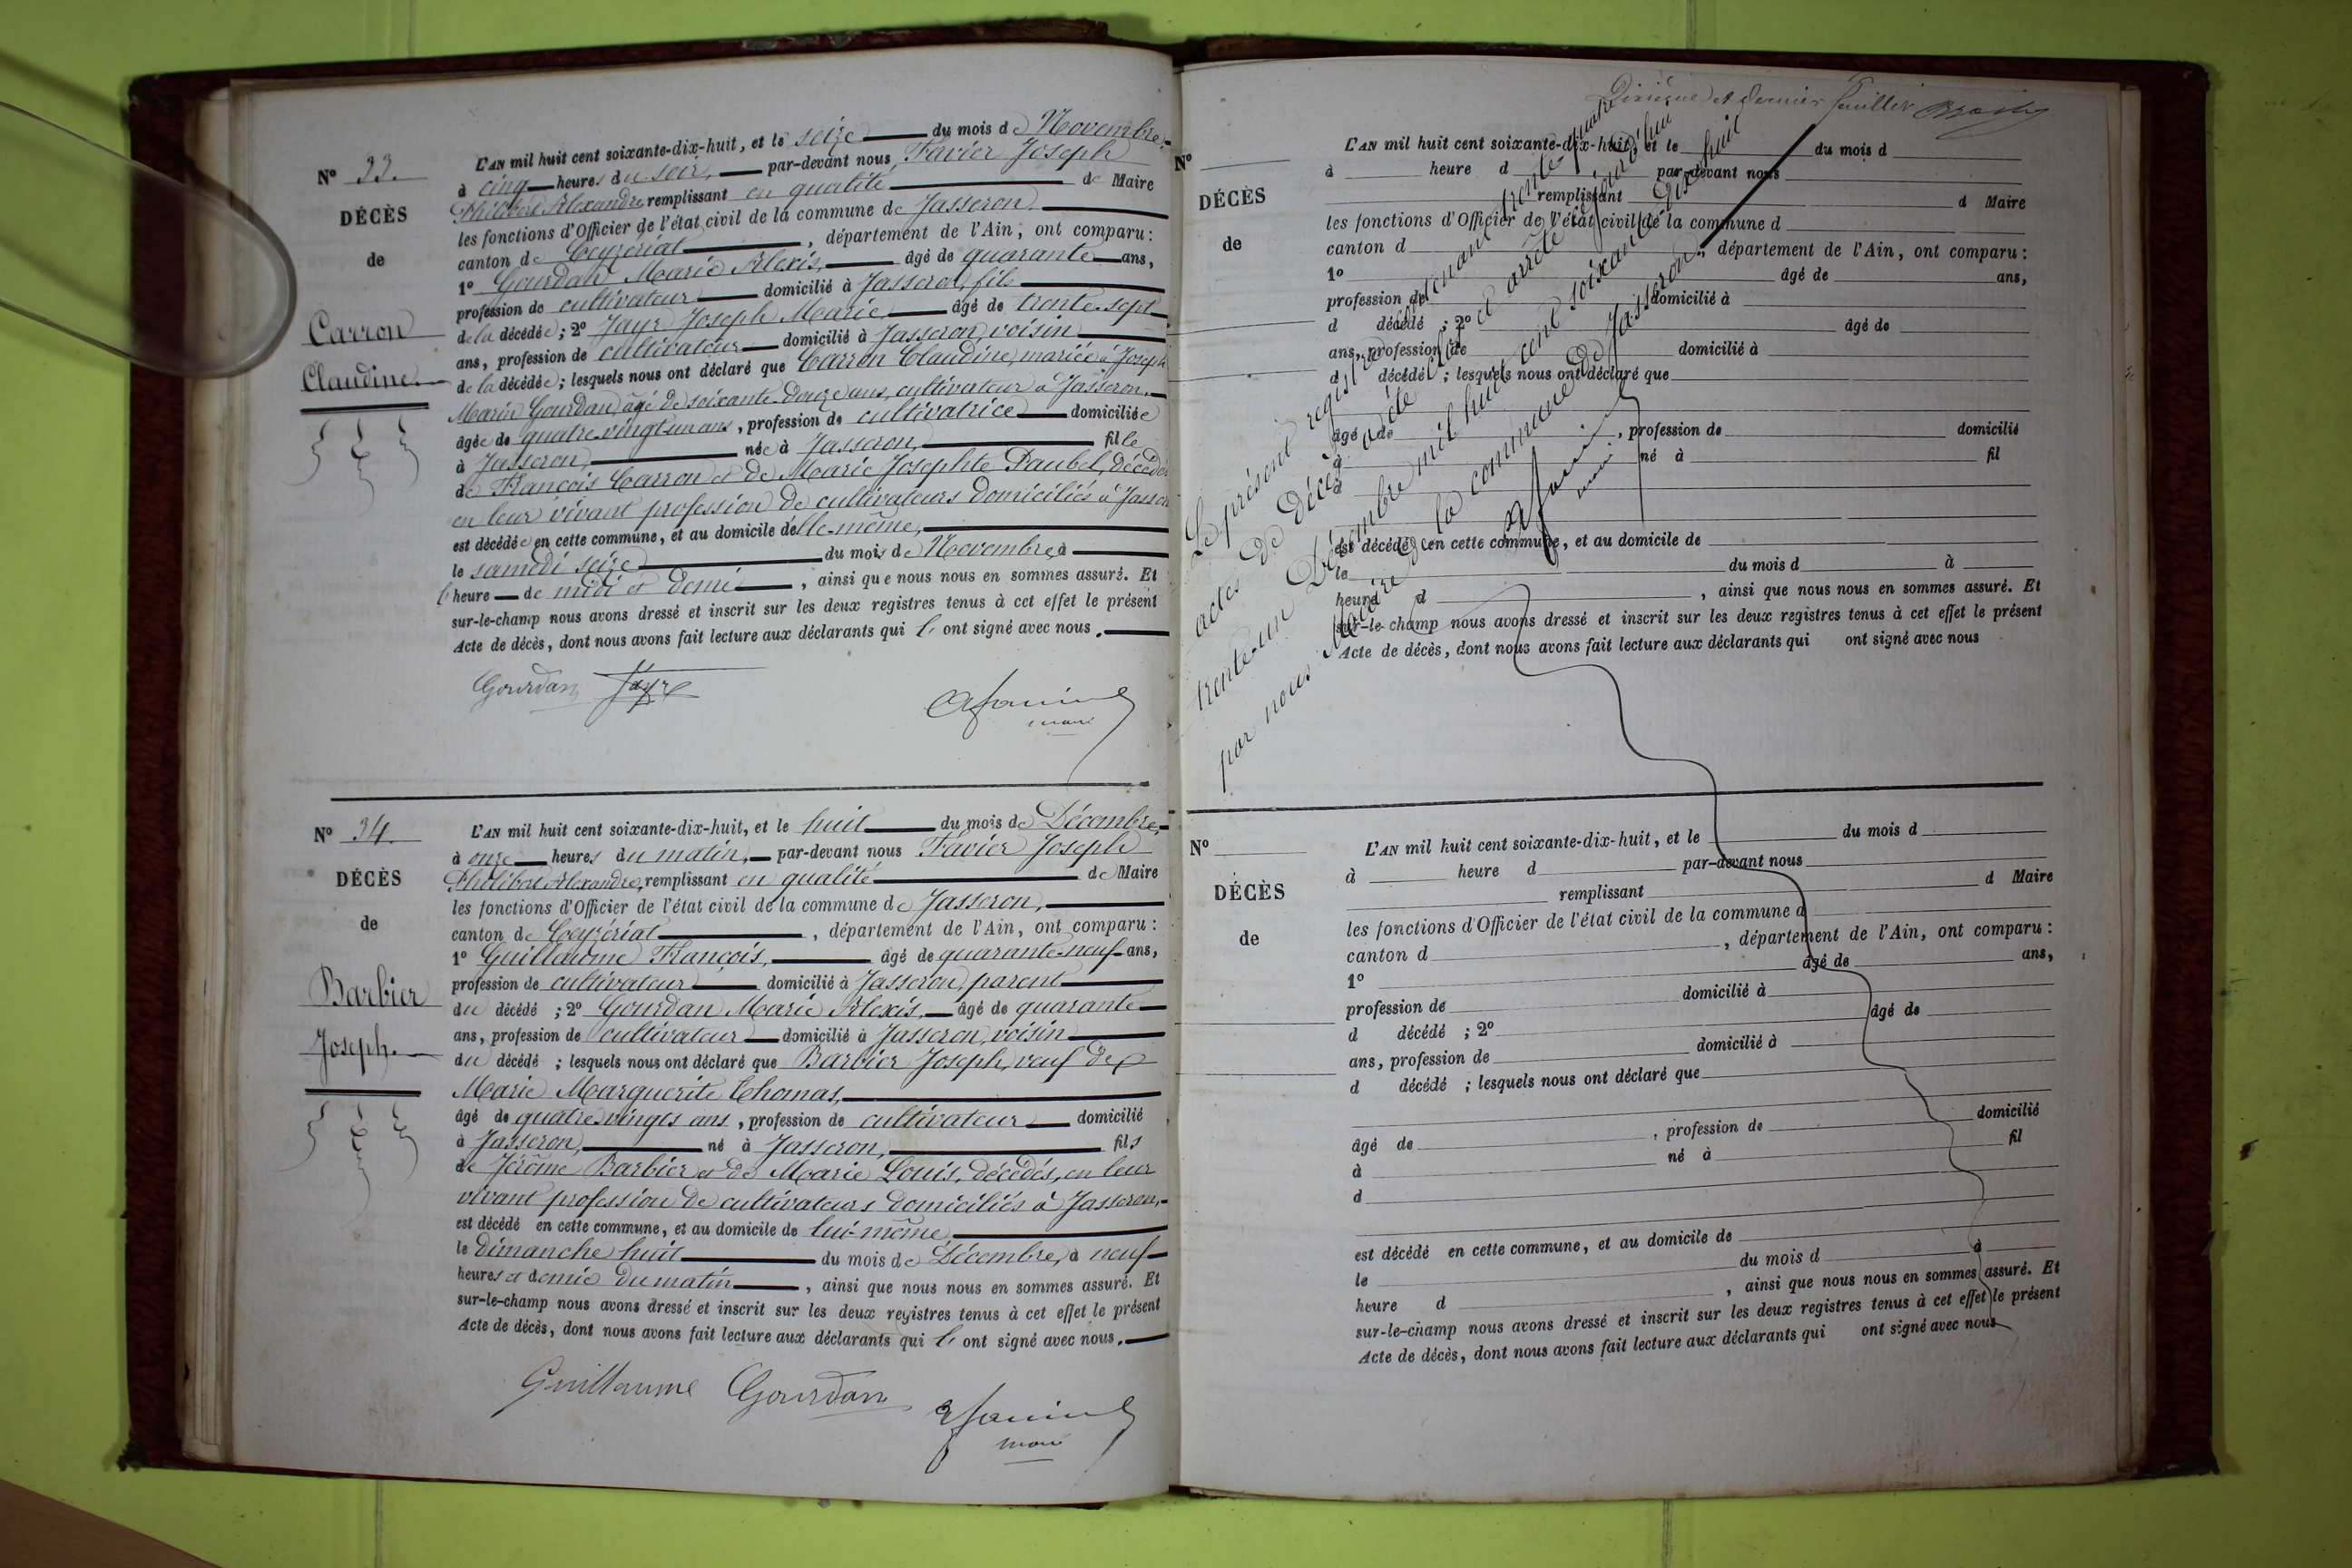 N° 33.
DÉCÈS
de
Carron
Claudine.
L'AN mil huit cent soixante-dix-huit, et le seize du mois de Novembre,
à cinq heures du soir, par-devant nous Favier Joseph
Philibert Alexandre remplissant en qualité de Maire
les fonctions d'Officier de l'état civil de la commune de Jasseron,
canton de Ceyzériat, département de l'Ain, ont comparu :
1° Gourdan Marie Alexis, âgé de quarante ans,
profession de cultivateur domicilié à Jasseron, fils
de la décédée ; 2° Jayr Joseph Marie, âgé de trente-sept
ans, profession de cultivateur domicilié à Jasseron, voisin
de la décédée ; lesquels nous ont déclaré que Carron Claudine, mariée à Joseph
Marie Gourdan, âgé de soixante-douze ans, cultivateur à Jasseron,
âgée de quatre-vingt-un ans, profession de cultivatrice domiciliée
à Jasseron, née à Jasseron, fille
de François Carron et de Marie Josephte Paubel, décédés
en leur vivant profession de cultivateurs domiciliés à Jasseron
est décédée en cette commune, et au domicile d'elle-même,
le samedi seize du mois de Novembre, à
l'heure de midi et demi, ainsi que nous nous en sommes assuré. Et
sur-le-champ nous avons dressé et inscrit sur les deux registres tenus à cet effet le présent
Acte de décès, dont nous avons fait lecture aux déclarants qui l' ont signé avec nous.
Gourdan Jayr
maire
N° 34.
DÉCÈS
de
Barbier
Joseph.
L'AN mil huit cent soixante-dix-huit, et le huit du mois de Décembre,
à onze heures du matin, par-devant nous Favier Joseph
Philibert Alexandre, remplissant en qualité de Maire
les fonctions d'Officier de l'état civil de la commune de Jasseron,
canton de Ceyzériat, département de l'Ain, ont comparu :
1° Guillaume François, âgé de quarante-neuf ans,
profession de cultivateur domicilié à Jasseron, parent
du décédé ; 2° Gourdan Marie Alexis, âgé de quarante
ans, profession de cultivateur domicilié à Jasseron, voisin
du décédé ; lesquels nous ont déclaré que Barbier Joseph, veuf de
Marie Marguerite Chomas,
âgé de quatre-vingts ans, profession de cultivateur domicilié
à Jasseron, né à Jasseron, fils
de Jérôme Barbier et de Marie Louis, décédés, en leur
vivant profession de cultivateurs domiciliés à Jasseron,
est décédé en cette commune, et au domicile de lui-même
le dimanche huit du mois de Décembre, à neuf
heures et demie du matin, ainsi que nous nous en sommes assuré. Et
sur-le-champ nous avons dressé et inscrit sur les deux registres tenus à cet effet le présent
Acte de décès, dont nous avons fait lecture aux déclarants qui l' ont signé avec nous.
Guillaume Gourdan
maire
Dixième et dernier feuillet
Le présent registre contenant trente-quatre
actes de décès a été clos et arrêté aujourd'hui
trente-un Décembre mil huit cent soixante dix huit
par nous Maire de la commune de Jasseron.
maire
N°
DÉCÈS
de
L'AN mil huit cent soixante-dix-huit, et le du mois d
à heure d par-devant nous
remplissant d Maire
les fonctions d'Officier de l'état civil de la commune d
canton d , département de l'Ain, ont comparu :
1° âgé de ans,
profession de domicilié à
d décédé ; 2° âgé de
ans, profession de domicilié à
d décédé ; lesquels nous ont déclaré que
âgé de , profession de domicilié
à né à fil
d
est décédé en cette commune, et au domicile de
le du mois d à
heure d , ainsi que nous nous en sommes assuré. Et
sur-le-champ nous avons dressé et inscrit sur les deux registres tenus à cet effet le présent
Acte de décès, dont nous avons fait lecture aux déclarants qui ont signé avec nous
N°
DÉCÈS
de
L'AN mil huit cent soixante-dix-huit, et le du mois d
à heure d par-devant nous
remplissant d Maire
les fonctions d'Officier de l'état civil de la commune d
canton d , département de l'Ain, ont comparu :
1° âgé de ans,
profession de domicilié à
d décédé ; 2° âgé de
ans, profession de domicilié à
d décédé ; lesquels nous ont déclaré que
âgé de , profession de domicilié
à né à fil
d
est décédé en cette commune, et au domicile de
le du mois d à
heure d , ainsi que nous nous en sommes assuré. Et
sur-le-champ nous avons dressé et inscrit sur les deux registres tenus à cet effet le présent
Acte de décès, dont nous avons fait lecture aux déclarants qui ont signé avec nous